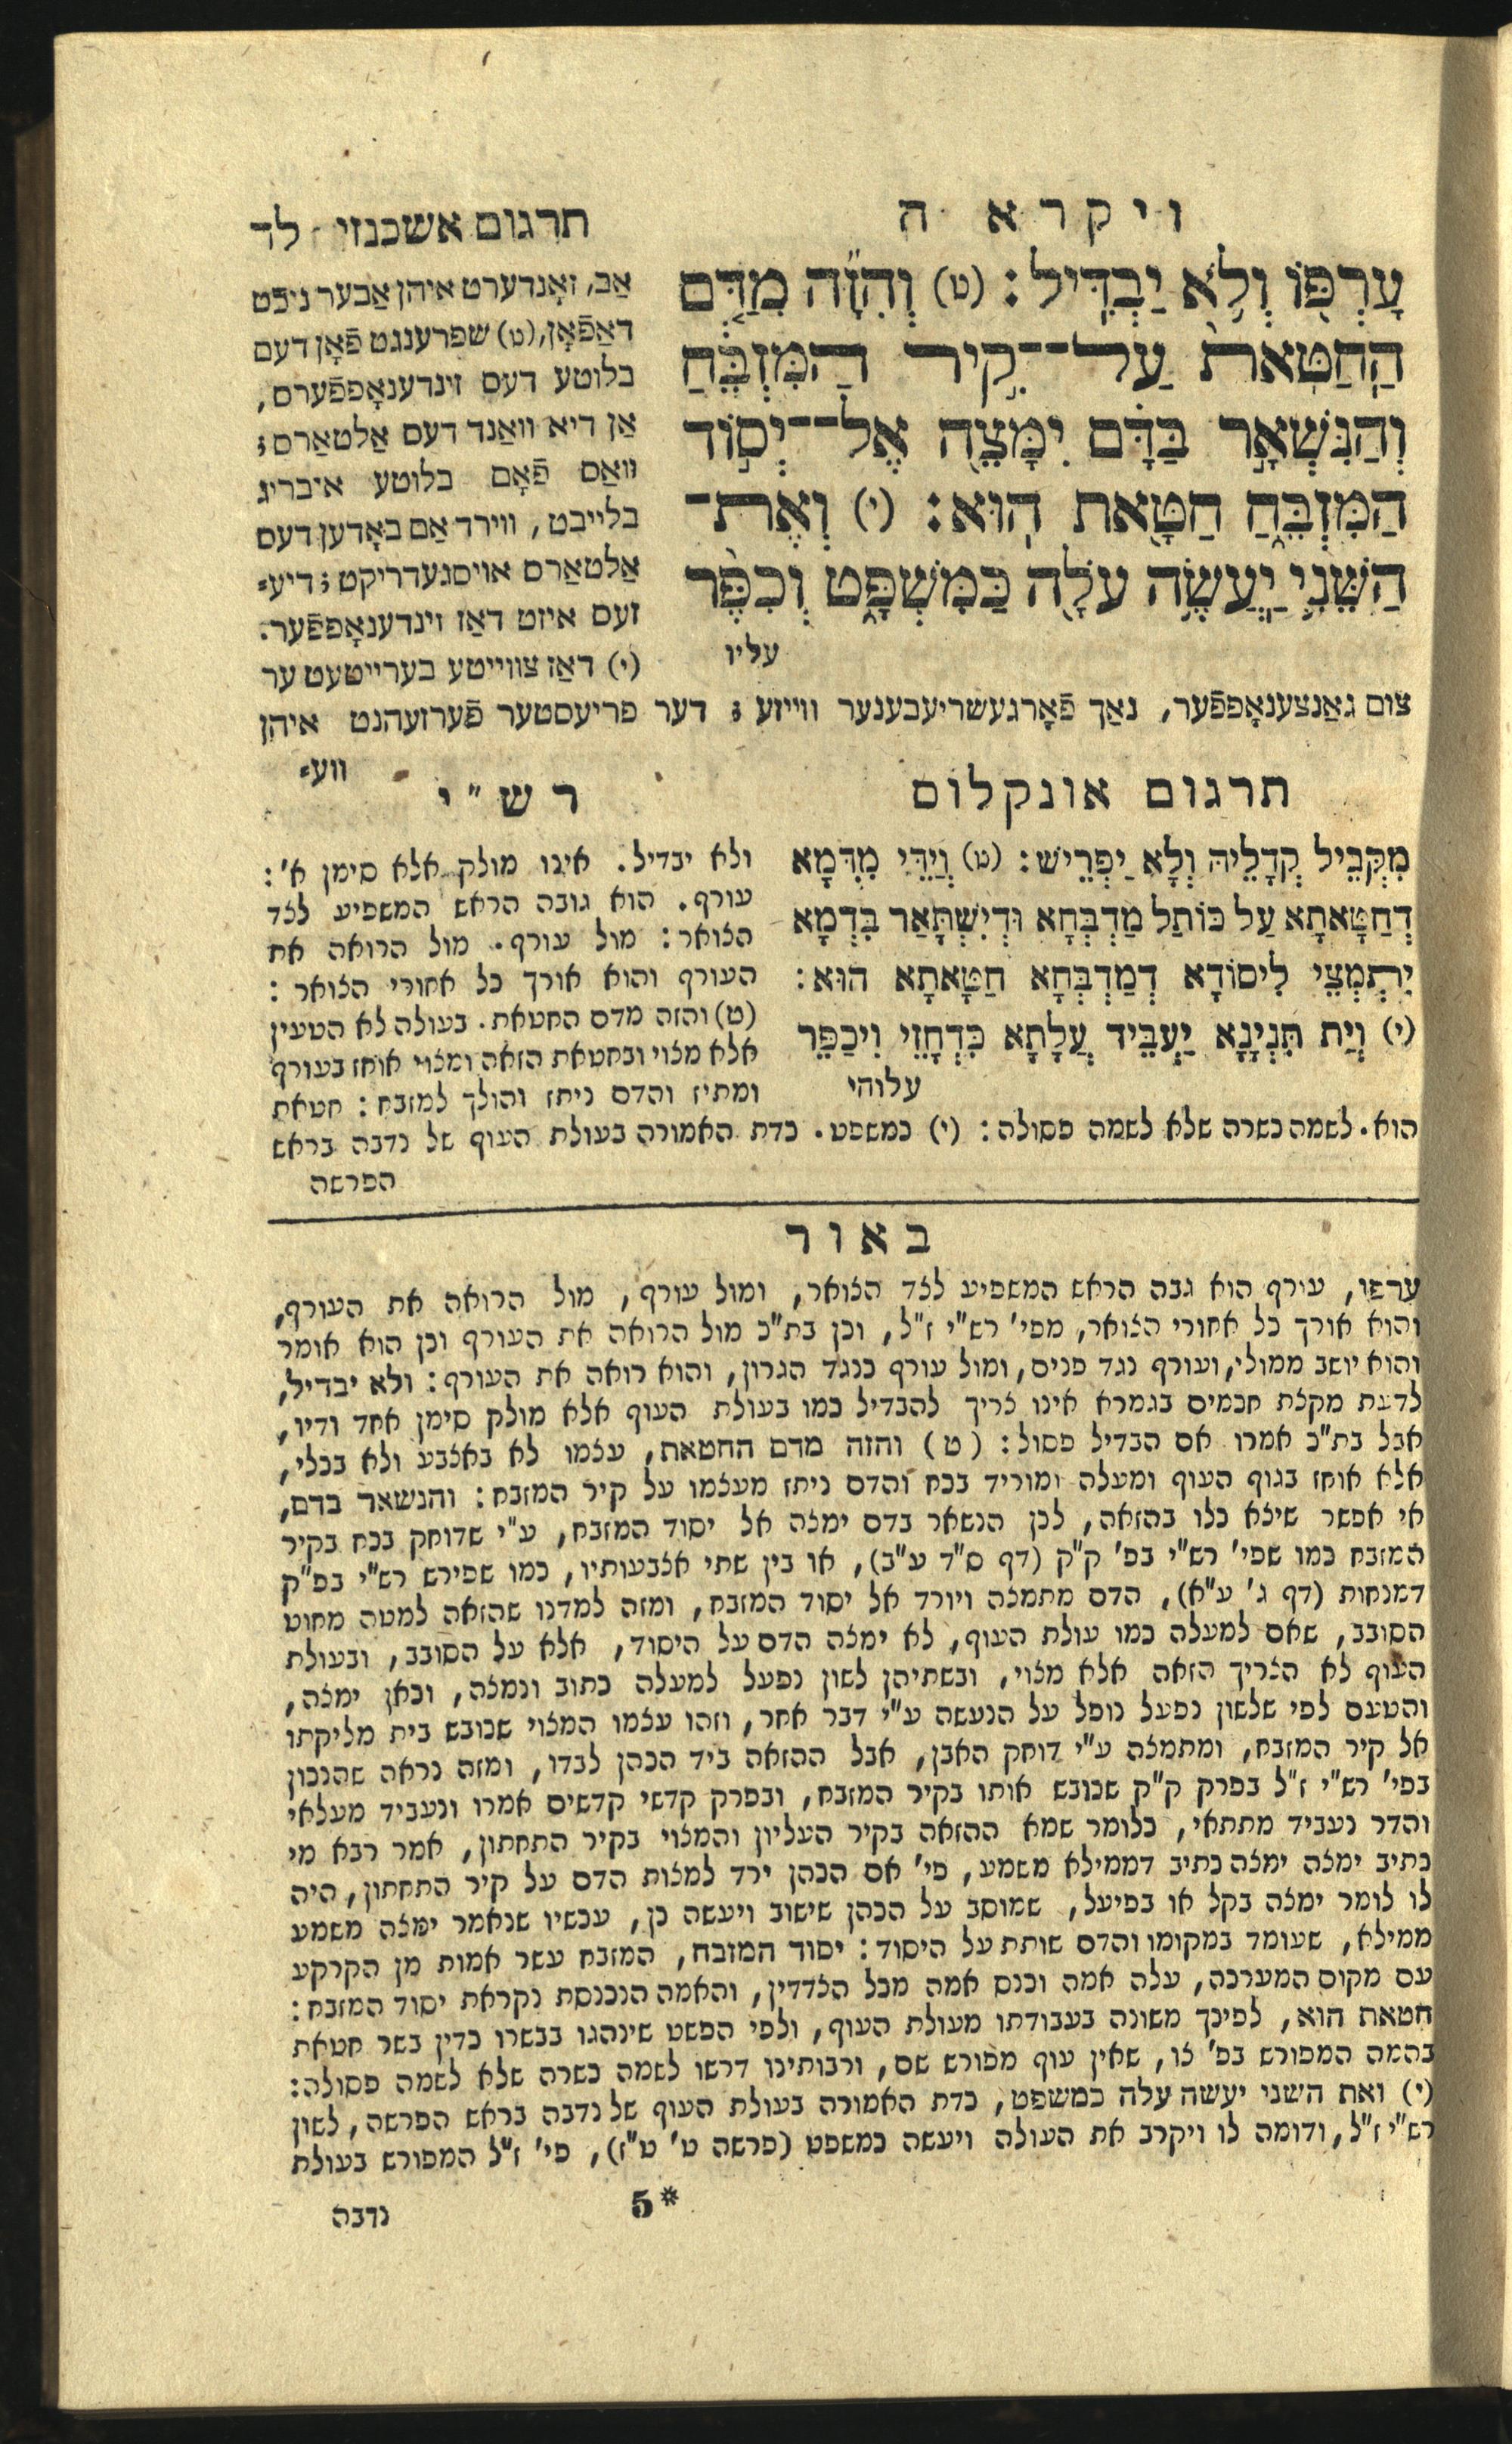 ויקרא ה
עָרְפּ֖וֹ וְלֹ֥א יַבְדִּֽיל׃ (ט) וְהִזָּ֞ה מִדַּ֤ם
הַֽחַטָּאת֙ עַל־קִ֣יר הַמִּזְבֵּ֔חַ
וְהַנִּשְׁאָ֣ר בַּדָּ֔ם יִמָּצֵ֖ה אֶל־יְס֣וֹד
הַמִּזְבֵּ֑חַ חַטָּ֖את הֽוּא׃ (י) וְאֶת־
הַשֵּׁנִ֛י יַעֲשֶׂ֥ה עֹלָ֖ה כַּמִּשְׁפָּ֑ט וְכִפֶּ֨ר
עליו
תרגום אשכנזי לד
אַב, זאָנדערט איהן אַבער ניכֿט
דאַפֿאָן, (ט) שפרענגט פֿאָן דעם
בלוטע דעס זינדענאָפפֿערס,
אַן דיא וואַנד דעס אַלטאַרס;
וואַס פֿאָם בלוטע איבריג
בלייבט, ווירד אַם באָדען דעס
אַלטאַרס אויסגעדריקט; דיע־
זעס איזט דאַז זינדענאָפפֿער.
(י) דאַז צווייטע בערייטעט ער
צום גאַנצענאָפפֿער, נאַך פֿאָרגעשריעבענער ווייזע; דער פריעסטער פֿערזעהנט איהן
ווע־
תרגום אונקלוס
מִקֳּבֵיל קְדָלֵיהּ וְלָא יַפְרֵישׁ: (ט) וְיַדֵּי מִדְּמָא
דְחַטָּאתָא עַל כּוֹתַל מַדְבְּחָא וּדְיִשְׁתָּאַר בִּדְמָא
יִתְמְצֵי לִיסוֹדָא דְמַדְבְּחָא חַטָּאתָא הוּא:
(י) וְיַת תִּנְיָנָא יַעְבֵּיד עֲלָתָא כִּדְחָזֵי וִיכַפֵּר
עלוהי
רש"י
ולא יבדיל. אינו מולק אלא סימן א':
עורף. הוא גובה הראש המשפיע לצד
הצואר: מול עורף. מול הרואה את
העורף והוא אורך כל אחורי הצואר:
(ט) והזה מדם החטאת. בעולה לא הטעין
אלא מצוי ובחטאת הזאה ומצוי אוחז בעורף
ומתיז והדם ניתז והולך למזבח: חטאת
הוא. לשמה כשרה שלא לשמה פסולה: (י) כמשפט. כדת האמורה בעולת העוף של נדבה בראש
הפרשה
באור
ערפו, עורף הוא גבה הראש המשפיע לצד הצואר, ומול עורף, מול הרואה את העורף,
והוא אורך כל אחורי הצואר, מפי' רש"י ז"ל, וכן בת"כ מול הרואה את העורף וכן הוא אומר
והוא יושב ממולי, ועורף נגד פנים, ומול עורף כנגד הגרון, והוא רואה את העורף: ולא יבדיל,
לדעת מקצת חכמים בגמרא אינו צריך להבדיל כמו בעולת העוף אלא מולק סימן אחד ודיו,
אבל בת"כ אמרו אם הבדיל פסול: (ט) והזה מדם החטאת, עצמו לא באצבע ולא בכלי,
אלא אוחז בגוף העוף ומעלה ומוריד בכח והדם ניתז מעצמו על קיר המזבח: והנשאר בדם,
אי אפשר שיצא כלו בהזאה, לכן הנשאר בדם ימצה אל יסוד המזבח, ע"י שדוחק בכח בקיר
המזבח כמו שפי' רש"י בפ' ק"ק (דף ס"ד ע"ב), או בין שתי אצבעותיו, כמו שפירש רש"י בפ"ק
דמנחות (דף ג' ע"א), הדם מתמצה ויורד אל יסוד המזבח, ומזה למדנו שהזאה למטה מחוט
הסובב, שאם למעלה כמו עולת העוף, לא ימצה הדם על היסוד, אלא על הסובב, ובעולת
העוף לא הצריך הזאה אלא מצוי, ובשתיהן לשון נפעל למעלה כתוב ונמצה, וכאן ימצה,
והטעם לפי שלשון נפעל נופל על הנעשה ע"י דבר אחר, וזהו עצמו המצוי שכובש בית מליקתו
אל קיר המזבח, ומתמצה ע"י דוחק האבן, אבל ההזאה ביד הכהן לבדו, ומזה נראה שהנכון
בפי' רש"י ז"ל בפרק ק"ק שכובש אותו בקיר המזבח, ובפרק קדשי קדשים אמרו ונעביד מעלאי
והדר נעביד מתתאי, כלומר שמא ההזאה בקיר העליון והמצוי בקיר התחתון, אמר רבא מי
כתיב ימצה ימצה כתיב דממילא משמע, פי' אם הכהן ירד למצות הדם על קיר התחתון, היה
לו לומר ימצה בקל או בפיעל, שמוסב על הכהן שישוב ויעשה כן, עכשיו שנאמר ימצה משמע
ממילא, שעומד במקומו והדם שותת על היסוד: יסוד המזבח, המזבח עשר אמות מן הקרקע
עם מקום המערכה, עלה אמה וכנס אמה מכל הצדדין, והאמה הנכנסת נקראת יסוד המזבח:
חטאת הוא, לפיכך משונה בעבודתו מעולת העוף, ולפי הפשט שינהגו בבשרו כדין בשר חטאת
בהמה המפורש בפ' צו, שאין עוף מפורש שם, ורבותינו דרשו לשמה כשרה שלא לשמה פסולה:
(י) ואת השני יעשה עלה כמשפט, כדת האמורה בעולת העוף של נדבה בראש הפרשה, לשון
רש"י ז"ל, ודומה לו ויקרב את העולה ויעשה כמשפט (פרשה ט' ט"ז), פי' ז"ל המפורש בעולת
5*
נדבה